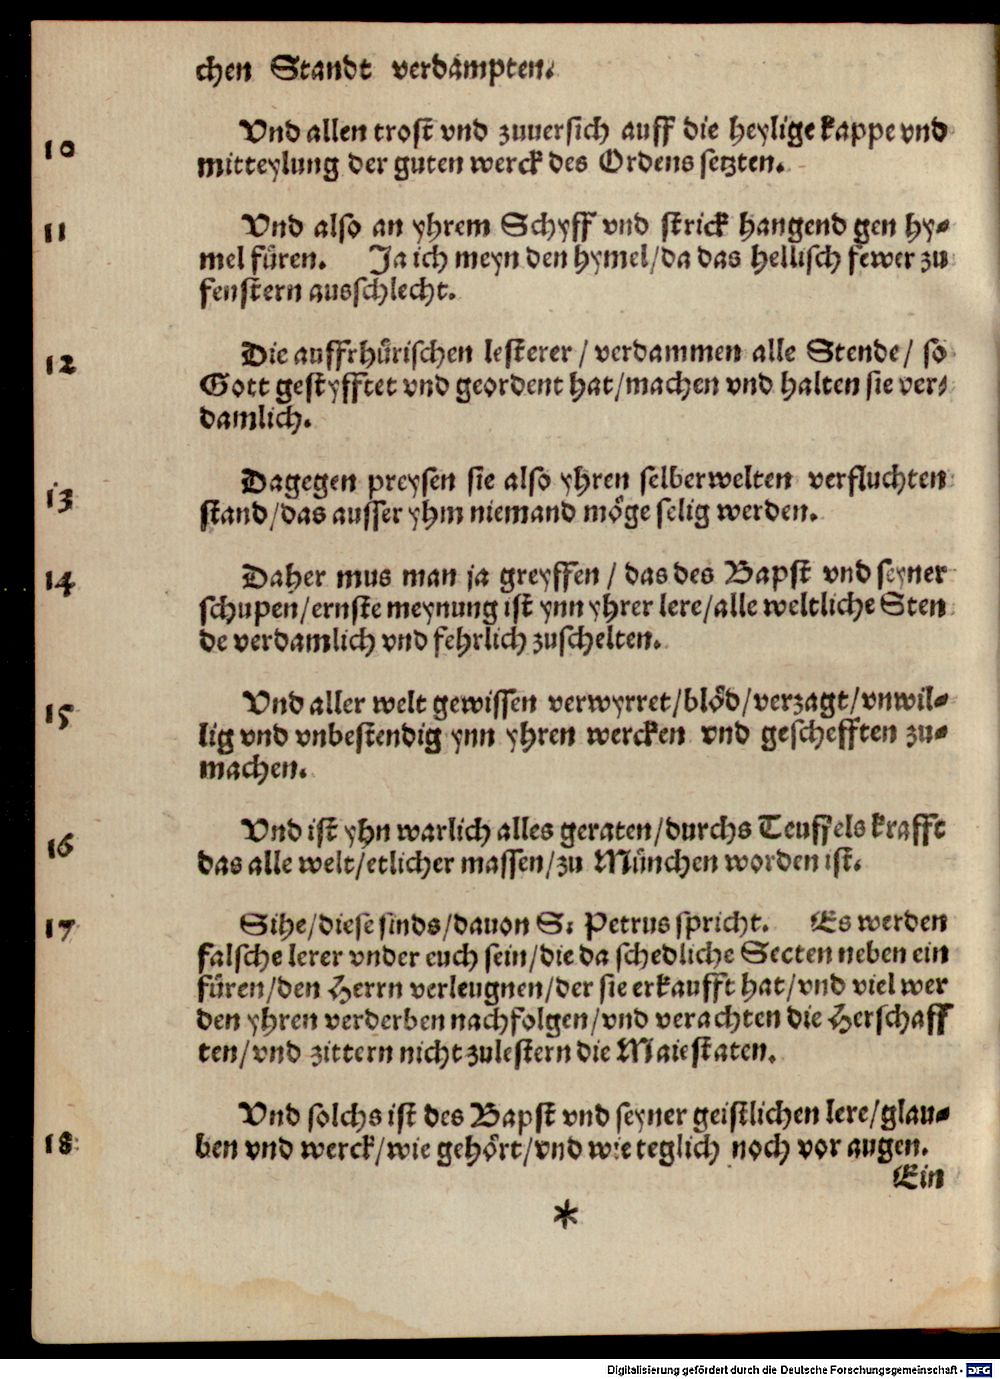 chen Standt verdampten.
10 Vnd allen trost vnd zuuersich auff die heylige kappe vnd
mitteylung der guten werck des Ordens setzten.
11 Vnd also an yhrem Schyff vnd strick hangend gen hy-
mel füren. Ja ich meyn den hymel/da das hellisch fewer zu
fenstern ausschlecht.
12 Die auffrhürischen lesterer/ verdammen alle Stende/ so
Gott gestyfftet vnd geordent hat/machen vnd halten sie ver-
damlich.
13 Dagegen preysen sie also yhren selberwelten verfluchten
stand/das ausser yhm niemand möge selig werden.
14 Daher mus man ja greyffen/ das des Bapst vnd seyner
schupen/ernste meynung ist ynn yhrer lere/alle weltliche Sten
de verdamlich vnd fehrlich zuschelten.
15 Vnd aller welt gewissen verwyrret/blöd/verzagt/vnwil-
lig vnd vnbestendig ynn yhren wercken vnd geschefften zu-
machen.
16 Vnd ist yhn warlich alles geraten/durchs Teuffels krafft
das alle welt/etlicher massen/zu München worden ist.
17 Sihe/diese sinds/dauon S: Petrus spricht. Es werden
falsche lerer vnder euch sein/die da schedliche Secten neben ein
füren/den Herrn verleugnen/der sie erkaufft hat/vnd viel wer
den yhren verderben nachfolgen/vnd verachten die Herschaff
ten/vnd zittern nicht zulestern die Maiestaten.
18 Vnd solchs ist des Bapst vnd seyner geistlichen lere/glau-
ben vnd werck/wie gehört/vnd wie teglich noch vor augen.
Ein
*
Digitalisierung gefördert durch die Deutsche Forschungsgemeinschaft - DFG